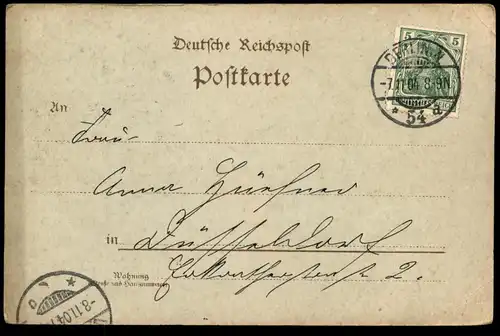 Deutsche Reichspost
Postkarte
5 5
BERLIN N
-7.11.04 8-9N
* 54 a
An
Frau
Anna
in Düsseldorf
Erkratherstraße 2.
Wohnung
(Straße und Hausnummer)
-8.11.04